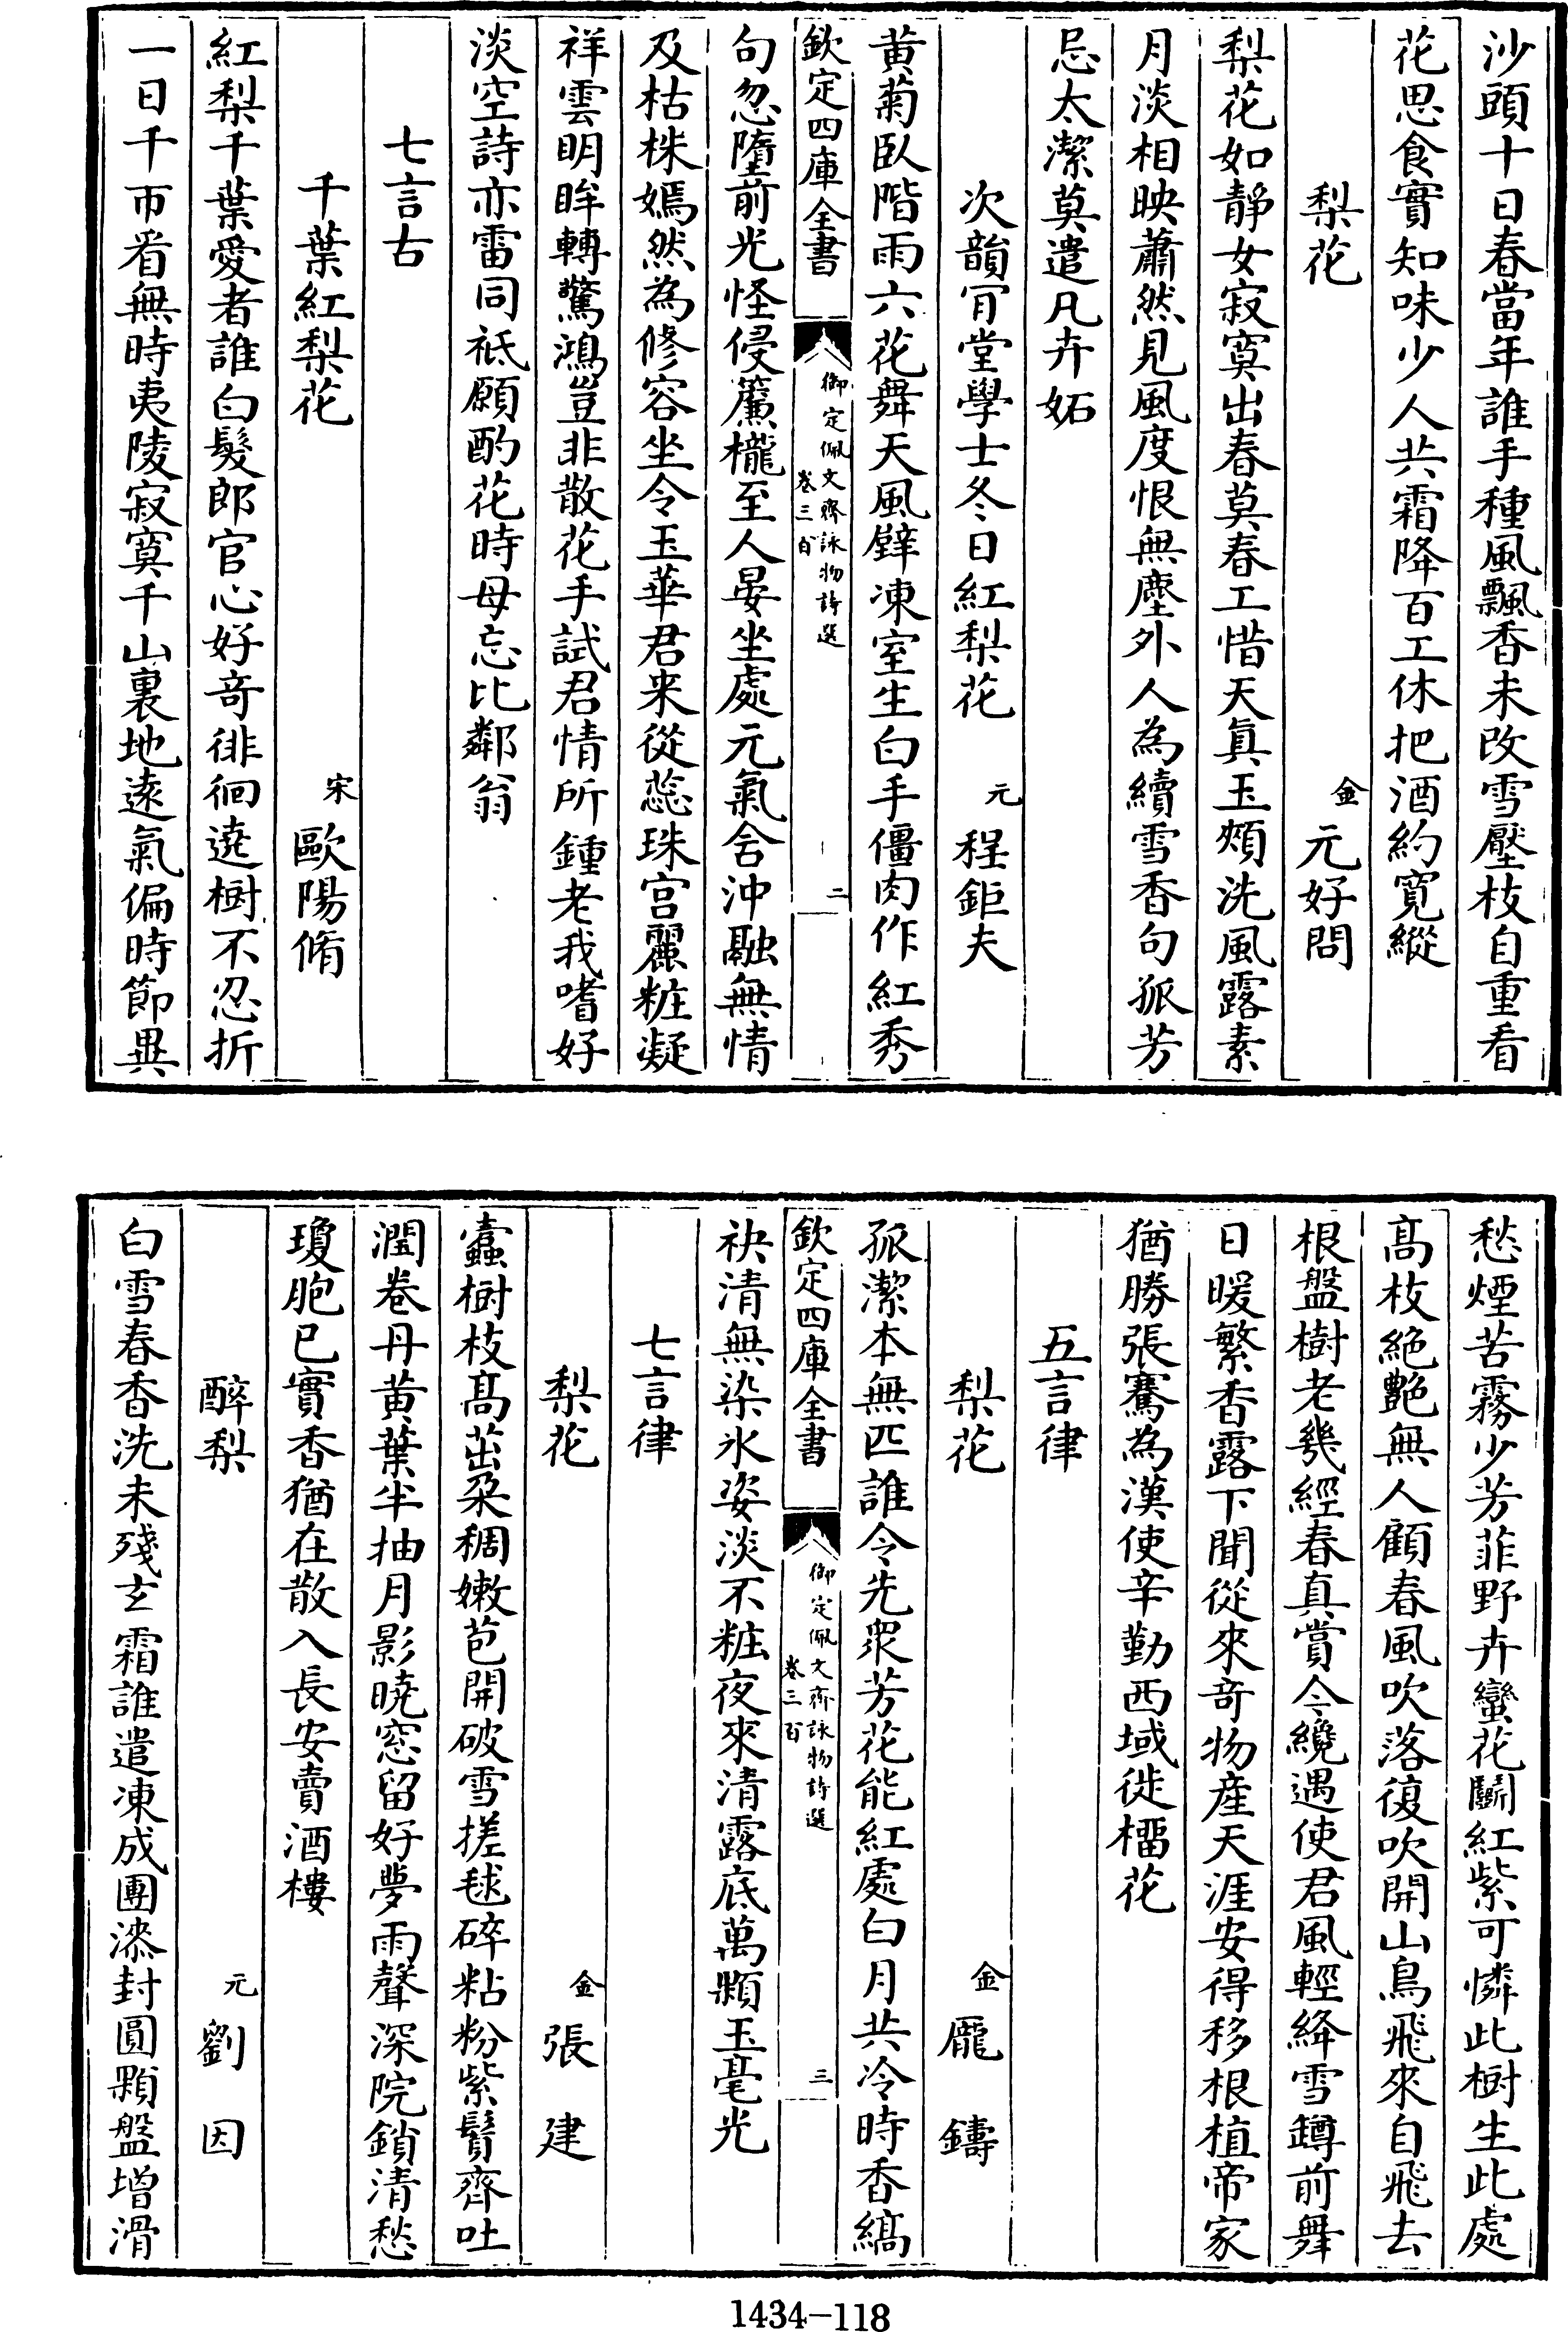 沙頭十日春當年誰手種風飄香未改雪壓枝自重看
花思食實知味少人共霜降百工休把酒約寛縱
梨花 金 元好問
梨花如靜女寂寞出春莫春工惜天真玉頰洗風露素
月淡相映蕭然見風度恨無塵外人為續雪香句孤芳
忌太潔莫遣凡卉妬
次韻肎堂學士冬日紅梨花 元 程鉅夫
黄菊臥階雨六花舞天風檘凍室生白手僵肉作紅秀
欽定四庫全書 御定佩文齋詠物詩選 卷三百 二
句忽墮前光怪侵簾櫳至人晏坐處元氣舍沖融無情
及枯株嫣然為修容坐令玉華君来從蕊珠宫麗粧凝
祥雲明眸轉驚鴻豈非散花手試君情所鍾老我嗜好
淡空詩亦雷同祗願酌花時毋忘比鄰翁
七言古
千葉紅梨花 宋 歐陽脩
紅梨千葉愛者誰白髮郎官心好奇徘徊遶樹不忍折
一日千帀看無時夷陵寂寞千山裏地遠氣偏時節異
愁煙苦霧少芳菲野卉蠻花鬬紅紫可憐此樹生此處
髙枝絶艷無人顧春風吹落復吹開山鳥飛來自飛去
根盤樹老幾經春真賞今纔遇使君風輕絳雪罇前舞
日暖繁香露下聞從來竒物産天涯安得移根植帝家
猶勝張騫為漢使辛勤西域徙橊花
五言律
梨花 金 龎鑄
孤潔本無匹誰令先衆芳花能紅處白月共冷時香縞
欽定四庫全書 御定佩文齋詠物詩選 卷三百 三
袂清無染氷姿淡不粧夜來清露底萬顆玉毫光
七言律
梨花 金 張建
蠧樹枝髙茁朶稠嫩苞開破雪搓毬碎粘粉紫鬚齊吐
潤卷丹黄葉半抽月影曉窓留好夢雨聲深院鎖清愁
瓊胞已實香猶在散入長安賣酒樓
醉梨 元 劉因
白雪春香洗未殘玄霜誰遣凍成團漆封圓顆盤増滑
1434-118